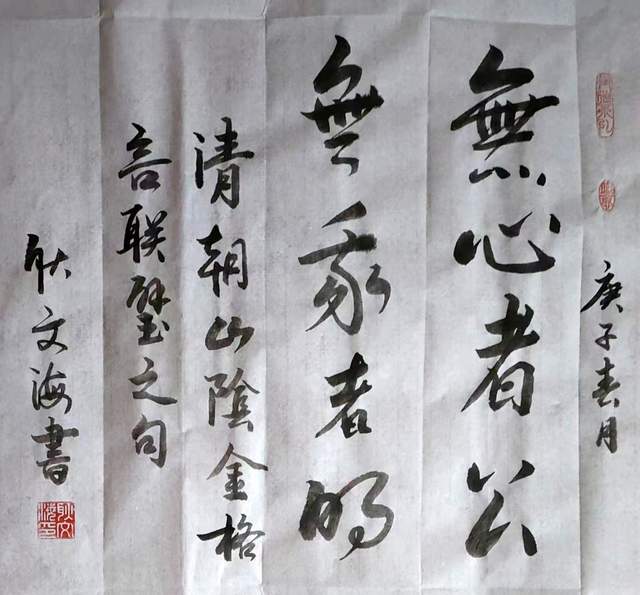 庚子春月
無心者公
無我者明
清朝山陰金格
言联璧之句
耿文海書